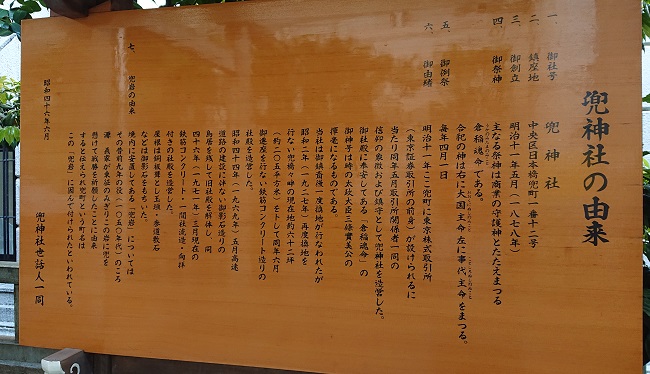 兜神社の由来
一、御社号 兜神社
二、鎮座地 中央区日本橋兜町一番十二号
三、御創立 明治十一年五月(一八七八年)
四、御祭神 主なる祭神は商業の守護神とたたえまつる
倉稲魂命である。
合祀の神は右に大国主命左に事代主命をまつる。
五、御例祭 毎年四月一日
六、御由緒 明治十一年ここ兜町に東京株式取引所
(東京証券取引所の前身)が設けられるに
当たり同年五月取引所関係者一同の
信仰の象徴および鎮守として兜神社を造営した。
御社殿に奉安してある(倉稲魂命)の
御神号は時の太政大臣三條實美公の
揮毫になるものである。
当社は御鎮斎後一度換地が行なわれたが
昭和二年(一九二七年)再度換地を
行ない兜橋々畔の現在地約六十二坪
(約二〇五平方米)をトして同年六月
御遷座を行ない鉄筋コンクリート造りの
社殿を造営した。
昭和四十四(一九六九)年五月高速
道路の建設に伴ない御影石造りの
鳥居を残して旧社殿を解体し、同
四十六(一九七一)年三月現在の
鉄筋コンクリート、一間社流造・向拝
付きの社殿を造営した。
屋根は銅板葺とし玉垣・参道敷石
などは御影石をもちいた。
七、兜岩の由来 境内に安置してある「兜岩」については
その昔前九年の役(一〇五〇年代)のころ
源義家が東征のみぎりこの岩に兜を
懸けて戦勝を祈願したことに由来
すると伝えられ兜町という町名は
この「兜岩」に因んで付けられたといわれている。
昭和四十六年六月
兜神社世話人一同